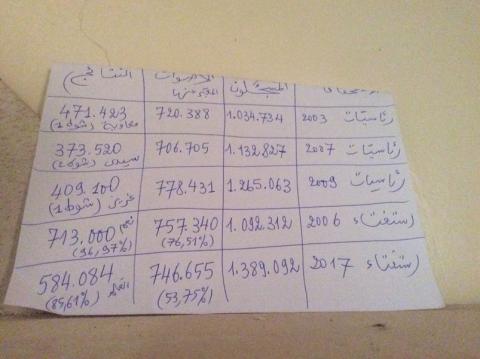 المسجلون الأصوات النتائج
رئاسيات 2003 1.034.734 720.388 471.423
معاوية (شوط 1)
رئاسيات 2007 1.132.827 706.705 373.520
سيدي (شوط 2)
رئاسيات 2009 1.265.063 778.431 409.100
عزيز (شوط 1)
استفتاء 2006 1.092.312 757.340 713.000 نعم
(76,51%) (96,97%)
استفتاء 2017 1.389.092 746.655 584.084
(53,75%) (85,61%)